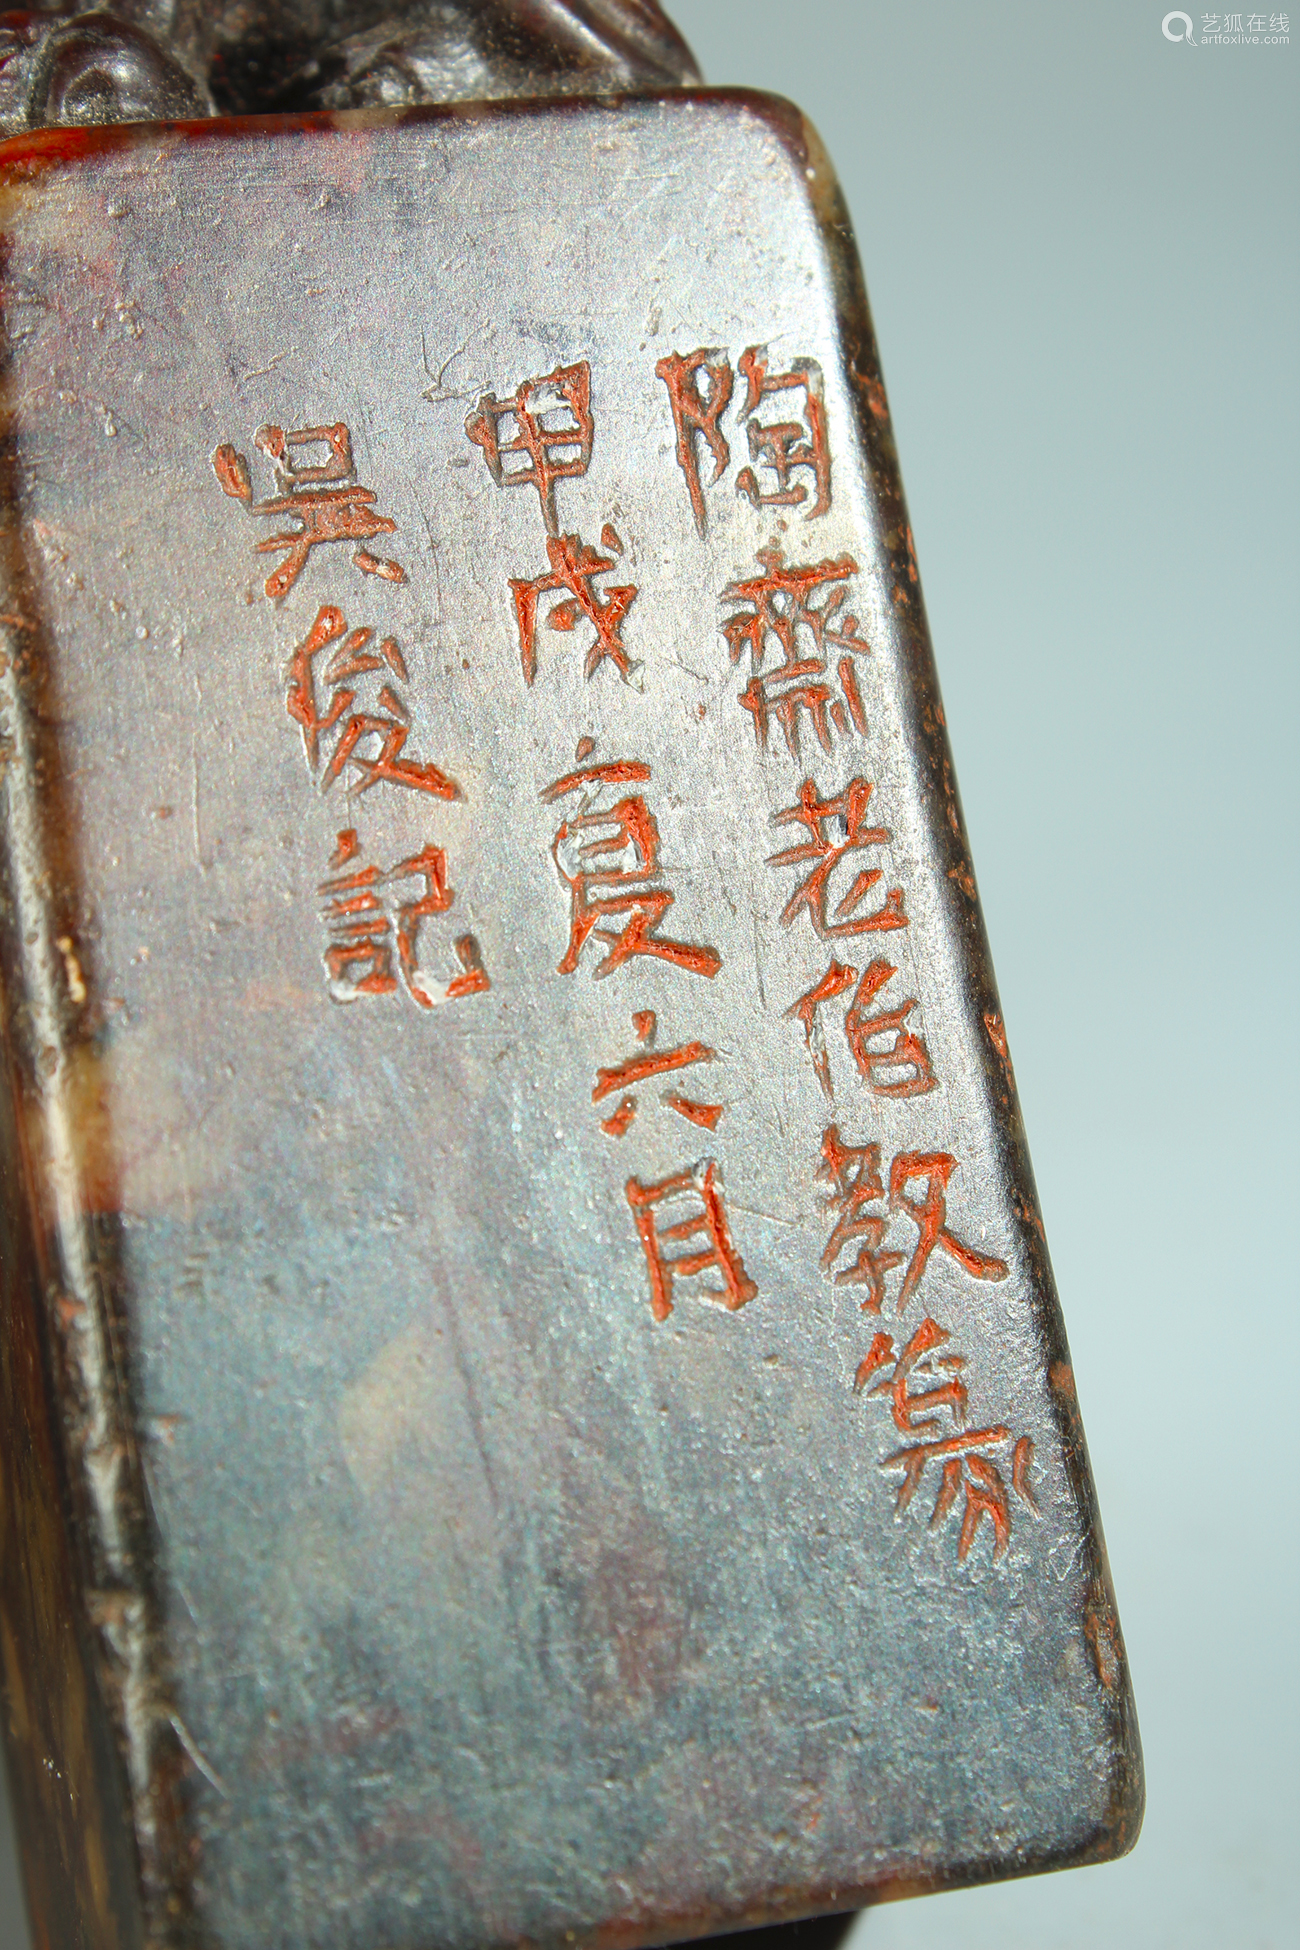 陶齋老伯教篆
甲戌夏六月
吳俊記
艺狐在线
artfoxlive.com